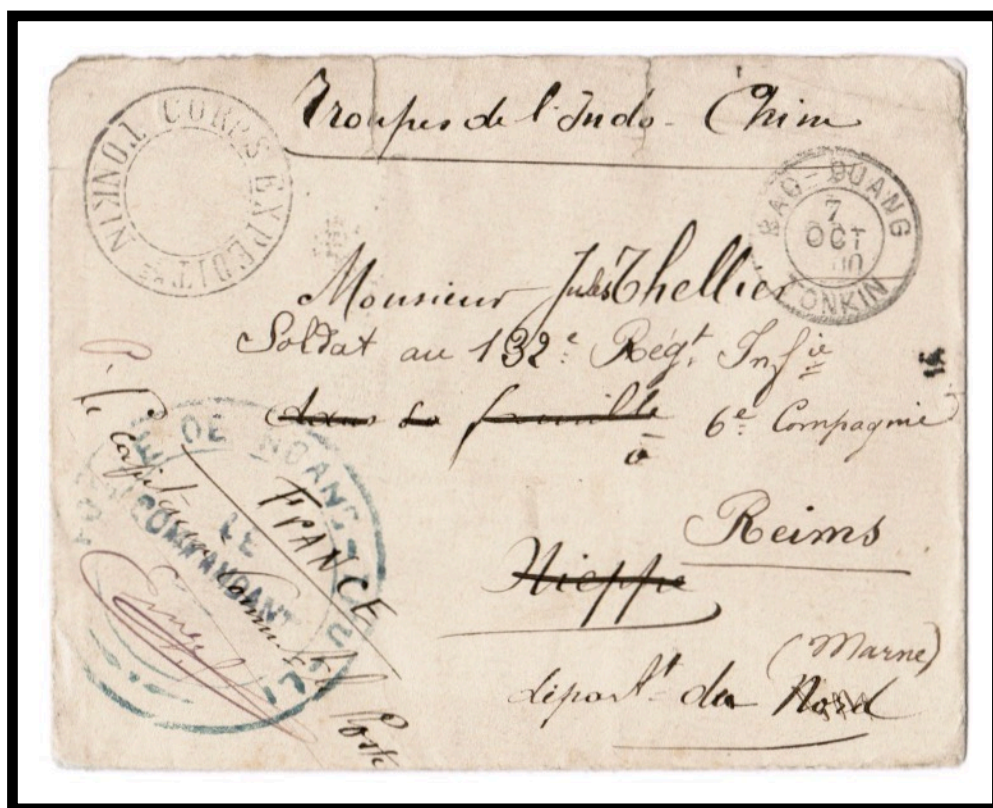 Troupes de l'Indo-Chine
CORPS EXPEDITre TONKIN
BAO-QUANG
7
OCT
00
TONKIN
Monsieur Jules Thellier
Soldat au 132e Régt Infie
dans sa famille 6e Compagnie
à
Reims
Nieppe
(Marne)
départt du Nord
FRANCE
LE
COMMANDANT
P. le Capitaine Commandt le Poste